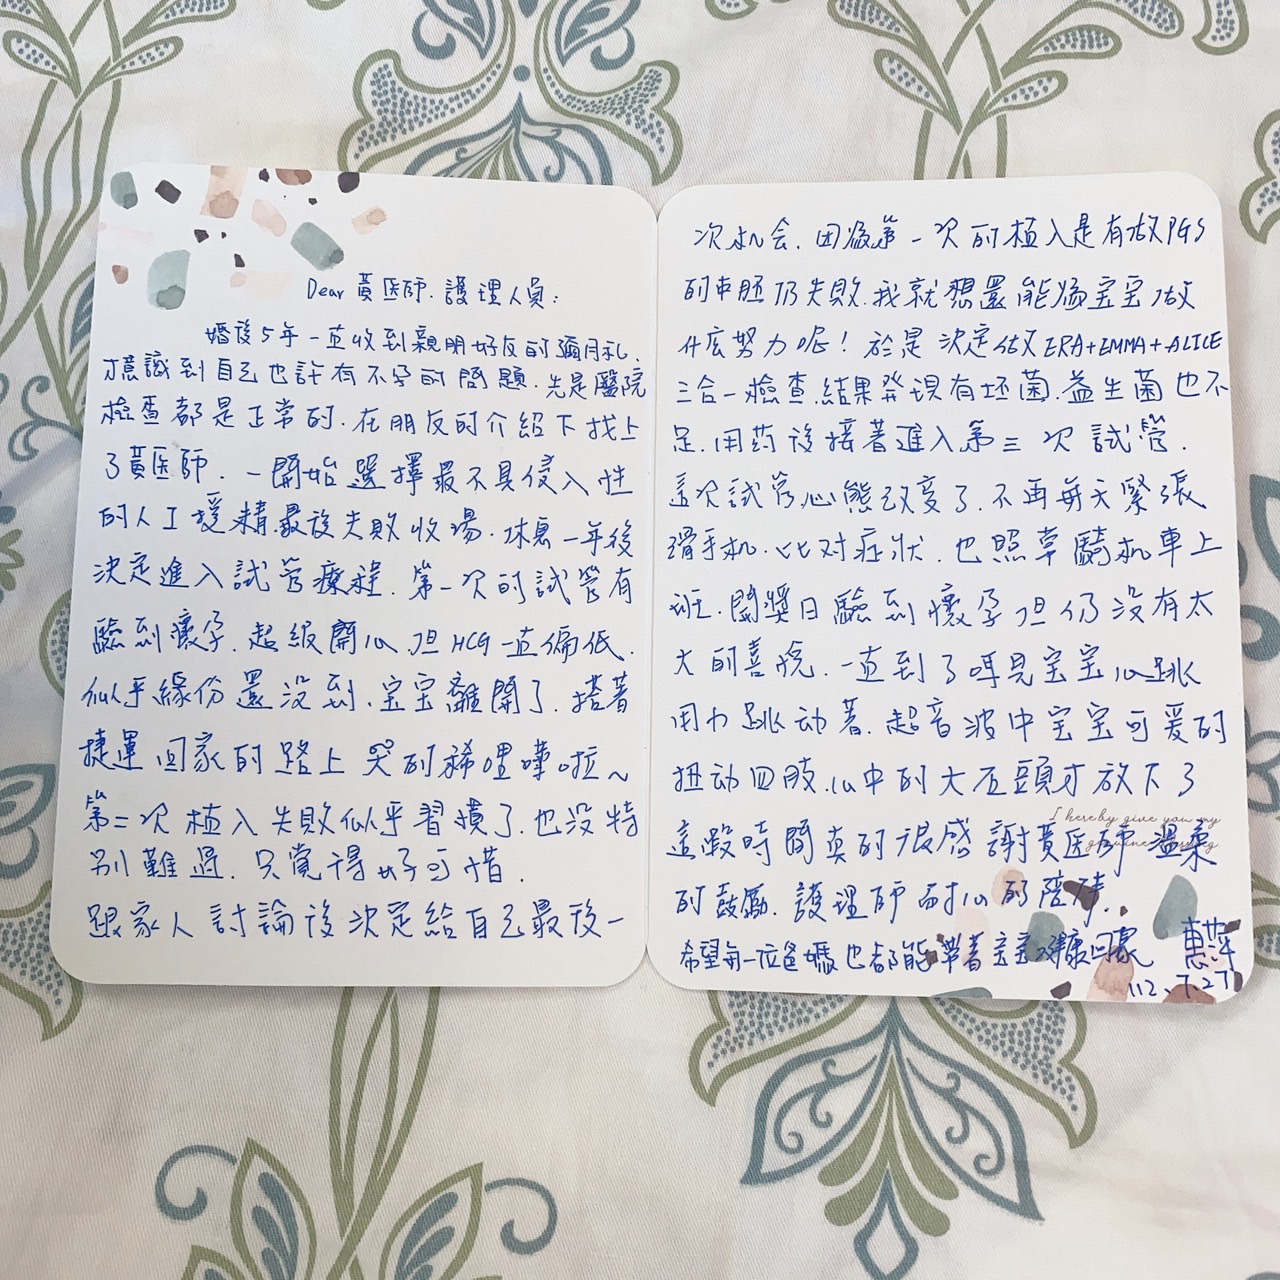 Dear 黃医師.護理人員:
婚後5年一直收到親朋好友的彌月礼,
才意識到自己也許有不孕的問題.先是醫院
檢查都是正常的.在朋友的介紹下找上
了黃医師.一開始選擇最不具侵入性
的人工受精.最後失敗收場.休息一年後
決定進入試管療程.第一次的試管有
驗到懷孕.超級開心但HCG一直偏低.
似乎緣份還没到.宝宝離開了.搭著
捷運回家的路上哭的稀哩嘩啦~
第二次植入失敗似乎習慣了.也没特
別難過.只覺得好可惜.
跟家人討論後決定給自己最後一
次机会.因為第一次的植入是有做PGS
的胚胎仍失敗.我就想還能為宝宝做
什広努力呢!於是決定做ERA+EMMA+ALICE
三合一檢查.結果発現有坏菌.益生菌也不
足.用药後接著進入第三次試管.
這次試管心態改変了.不再每天緊張
滑手机.比对症狀.也照草騎机車上
班.開獎日驗到懷孕但仍没有太
大的喜悅.一直到了听見宝宝心跳
用力跳动著.超音波中宝宝可爱的
扭动四肢.心中的大石頭才放下了
I hereby give you my
這段時間真的很感謝黃医師溫柔
的鼓勵.護理師耐心的陪伴.
希望每一位爸媽也都能帶著宝宝健康回家
112.7.27